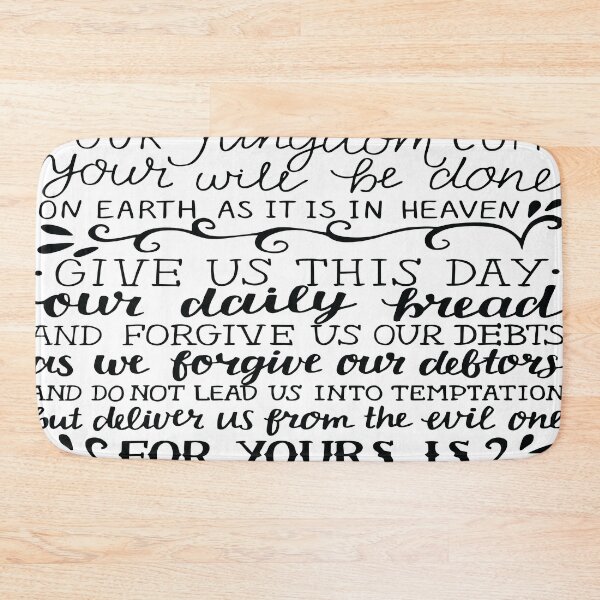 OUR Kingdom
your will be done
ON EARTH AS IT IS IN HEAVEN
GIVE US THIS DAY
our daily bread
AND FORGIVE US OUR DEBTS
as we forgive our debtors
AND DO NOT LEAD US INTO TEMPTATION
but deliver us from the evil one
FOR YOURS IS